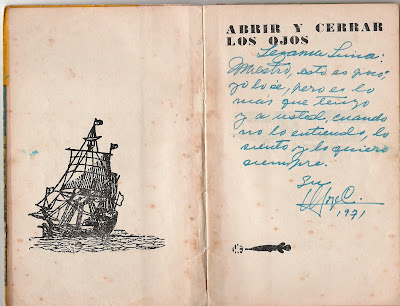 ABRIR Y CERRAR
LOS OJOS
Lezama Lima:
Maestro, esto es poco,
yo lo sé, pero es lo
más que tengo
y a usted, cuando
no lo entiendo, lo
siento y lo quiere
siempre.
Su
1971